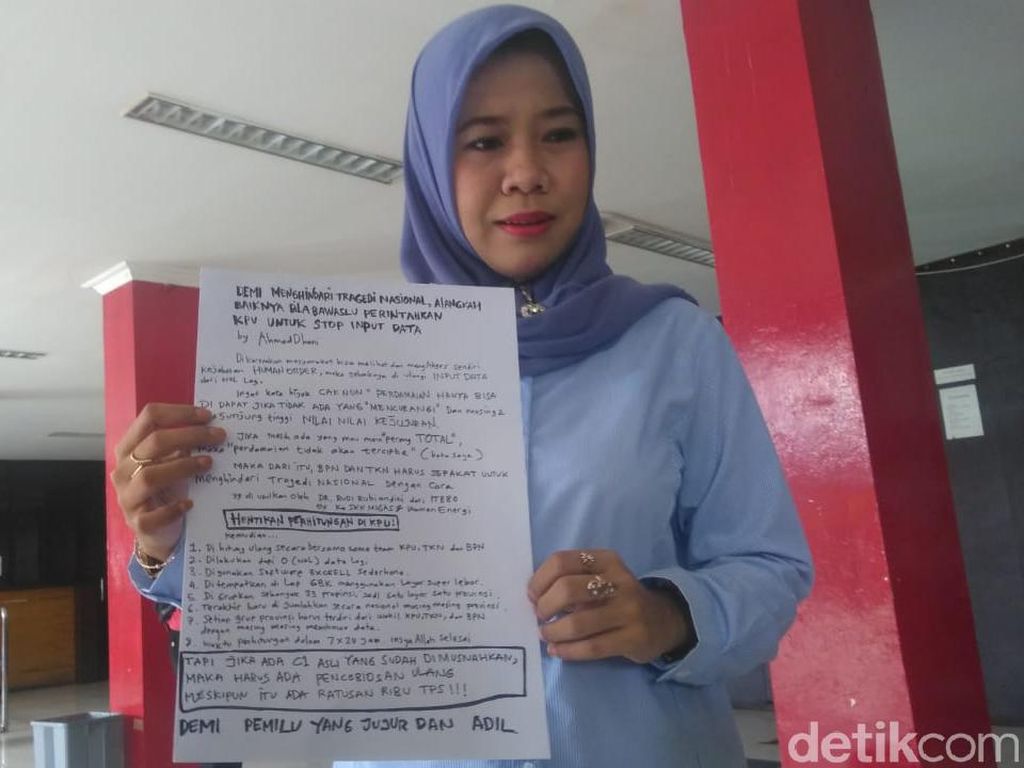 DEMI MENGHINDARI TRAGEDI NASIONAL, ALANGKAH
BAIKNYA BILA BAWASLU PERINTAHKAN
KPU UNTUK STOP INPUT DATA
by AhmadDhani
Dikarenakan masyarakat bisa melihat dan sendiri
HUMAN ORDER, maka sebaiknya di ulangi INPUT DATA
dari NOL Lagi.
Ingat kata bijak CAK NUN " PERDAMAIAN HANYA BISA
DI DAPAT JIKA TIDAK ADA YANG "MENCURANGI" Dan masing2
menjunjung tinggi NILAI NILAI KEJUJURAN.
JIKA masih ada yang mau men"perang TOTAL",
maka "perdamaian tidak akan tercipta" (kata saya)
MAKA DARI ITU, BPN DAN TKN HARUS SEPAKAT UNTUK
menghindari Tragedi NASIONAL Dengan Cara
yg di usulkan oleh DR. RUDI Rubiandini dari ITB80
Ex Ka SKK MIGAS & Wamen Energi
HENTIKAN PERHITUNGAN DI KPU!
Kemudian...
1. Di hitung ulang secara bersama sama team KPU, TKN dan BPN
2. Dilakukan dari 0 (NOL) data lagi.
3. Digunakan Software EXCELL Sederhana.
4. Ditempatkan di Lap GBK menggunakan layar super lebar.
5. Di Grupkan sebanyak 33 propinsi, Jadi satu layar satu provinsi.
6. Terakhir baru di jumlahkan secara nasional masing masing provinsi.
7. Setiap grup provinsi harus terdiri dari wakil KPU, TKN, dan BPN
dengan masing masing membawa data.
8. Waktu perhitungan dalam 7x24 jam. insya Allah selesai
TAPI JIKA ADA C1 ASLI YANG SUDAH DIMUSNAHKAN,
MAKA HARUS ADA PENCOBLOSAN ULANG
MESKIPUN ITU ADA RATUSAN RIBU TPS!!!
DEMI PEMILU YANG JUJUR DAN ADIL
detikcom